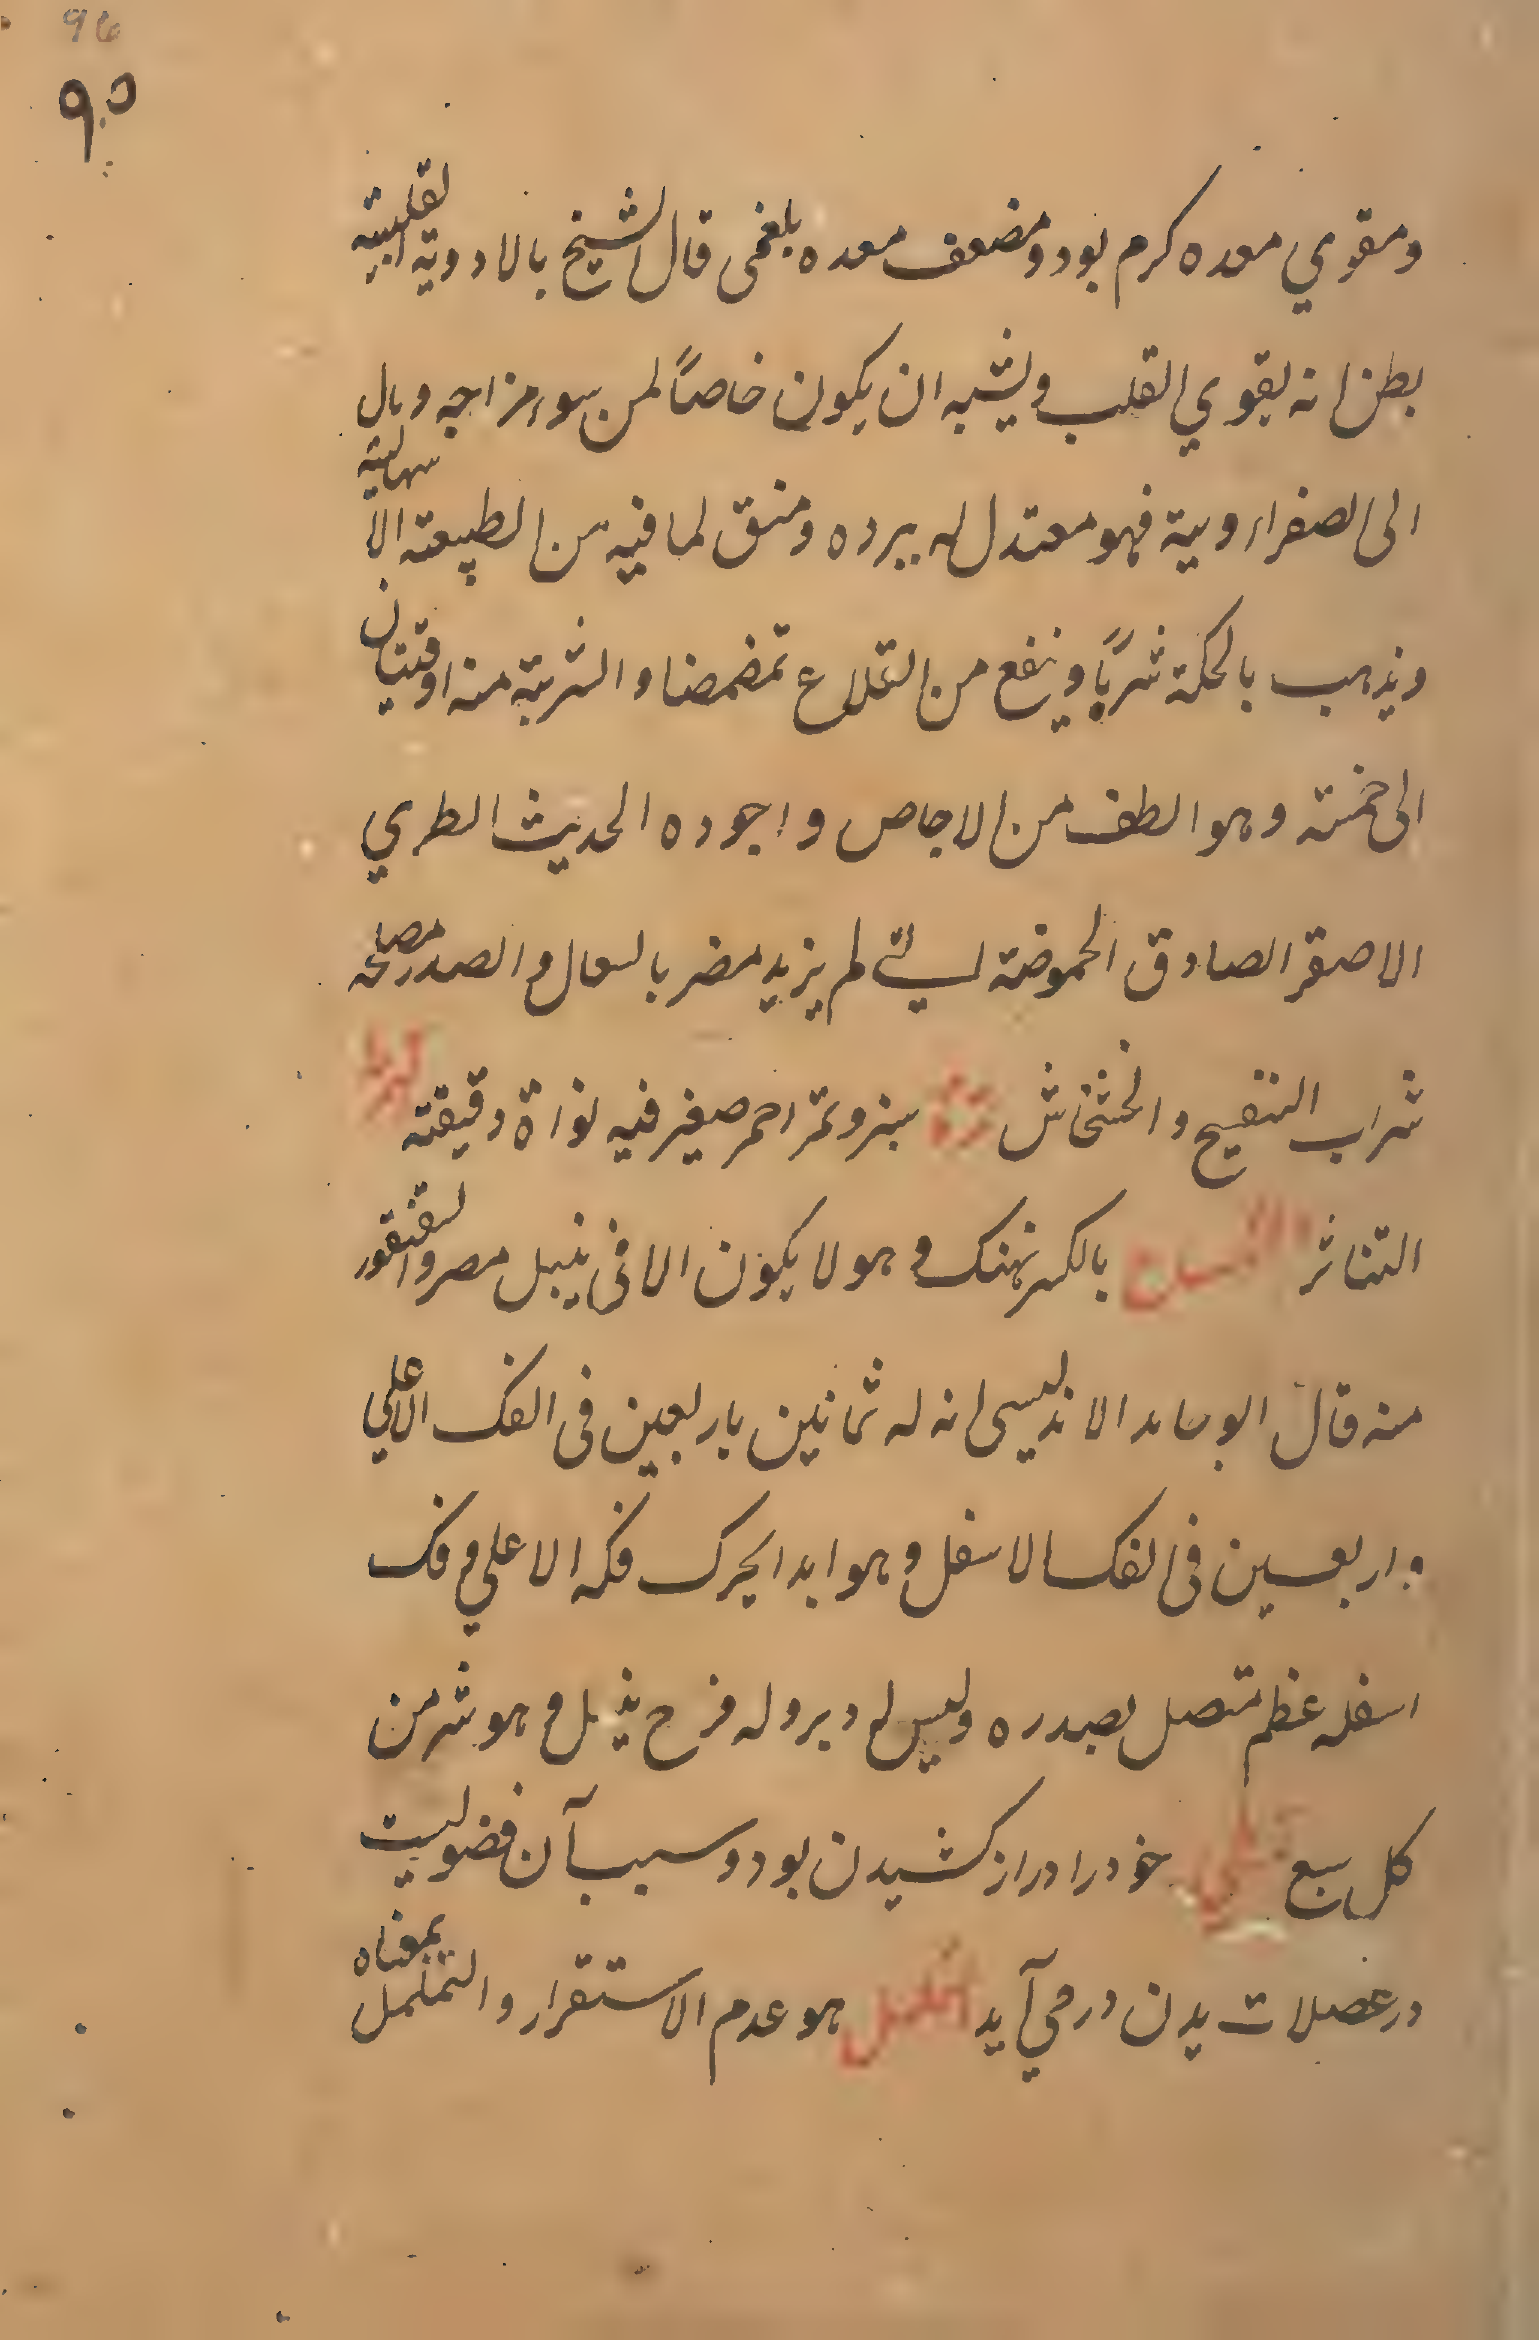 96
٩٥
ومقوي معده كرم بود ومضعف معده بلغمى قال الشيخ بالادوية القلبية
يظن انه يقوي القلب ويشبه ان يكون خاصاً لمن سوء مزاجه ومال
الى الصفراروية فهو معتدل له ببرده ومنق لما فيه من الطبيعة الاسهالية
ويذهب بالحكة شرباً وينفع من القلاع تمضمضا والشربة منه اوقيتان
الى خمسة وهو الطف من الاجاص واجوده الحديث الطري
الاصقر الصادق الحموضة لم يزيد مضر بالسعال والصدر مصلحه
شراب البنفسج والخشخاش تمرة سبز وتمر احمر صغير فيه نواة دقيقة
التناثر التمساح بالكسر نهنك وهو لا يكون الا فى نيل مصر والسقنقور
منه قال ابو حامد الاندلسى انه له ثمانين ناب اربعين فى الفك الاعلي
واربعين فى الفك الاسفل وهو ابدا يحرك فكه الاعلي وفك
اسفله عظم متصل بصدره وليس له دبر وله فرج يذبل وهو شر من
كل سبع تمطي خود را دراز كشيدن بود وسبب آن فضوليست
در عضلات بدن درمي آيد التململ هو عدم الاستقرار والتململ بمعناه